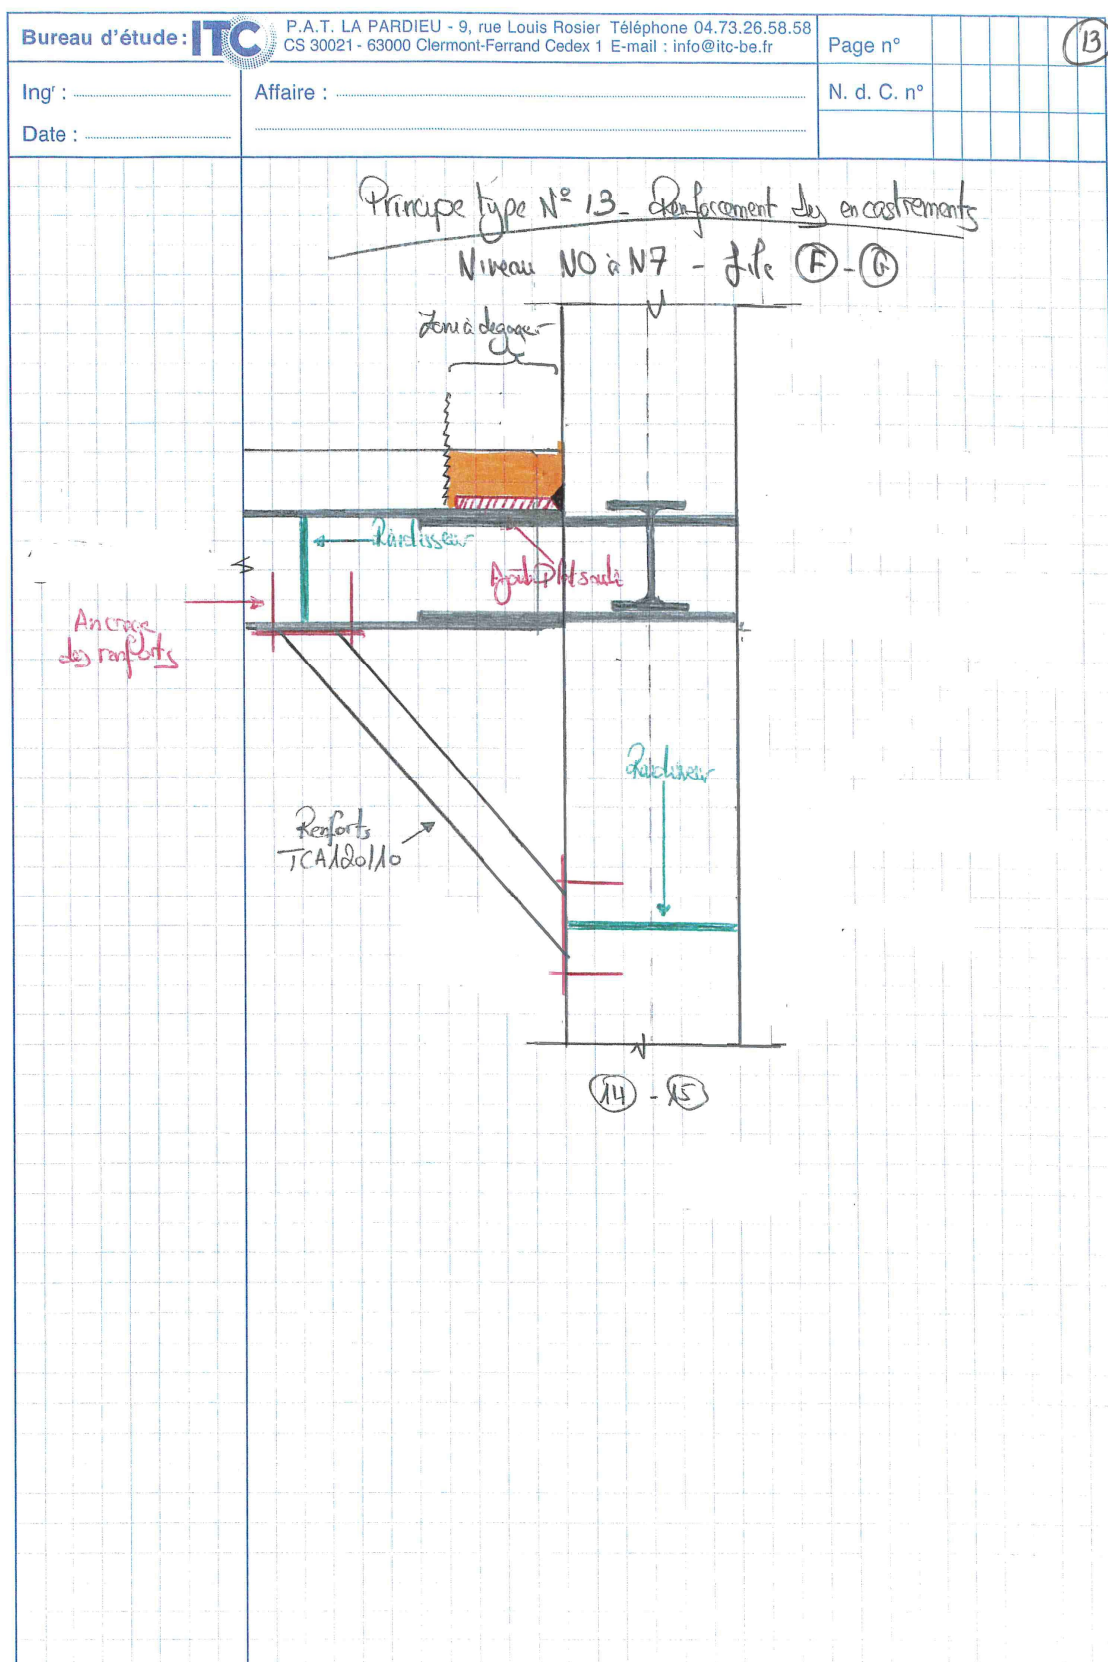 Bureau d'étude: ITC
P.A.T. LA PARDIEU - 9, rue Louis Rosier Téléphone 04.73.26.58.58
CS 30021 - 63000 Clermont-Ferrand Cedex 1 E-mail : info@itc-be.fr
Page n°
13
Ingr :
Affaire :
N. d. C. n°
Date :
Principe type N° 13 - Renforcement des encastrements
Niveau N0 à N7 - file F - G
Zone à dégager
Raidisseur
Ajout Plat soudé
Ancrage
des renforts
Raidisseur
Renforts
TCA120/10
14 - 15